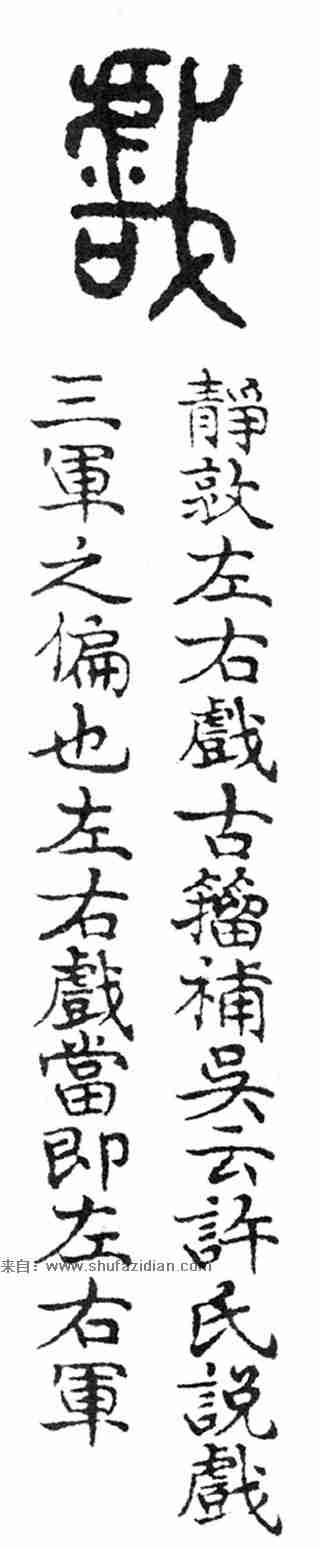 戲
靜敦左右戲古籀補吳云許氏說戲
三軍之偏也左右戲當即左右軍
来自：www.shufazidian.com